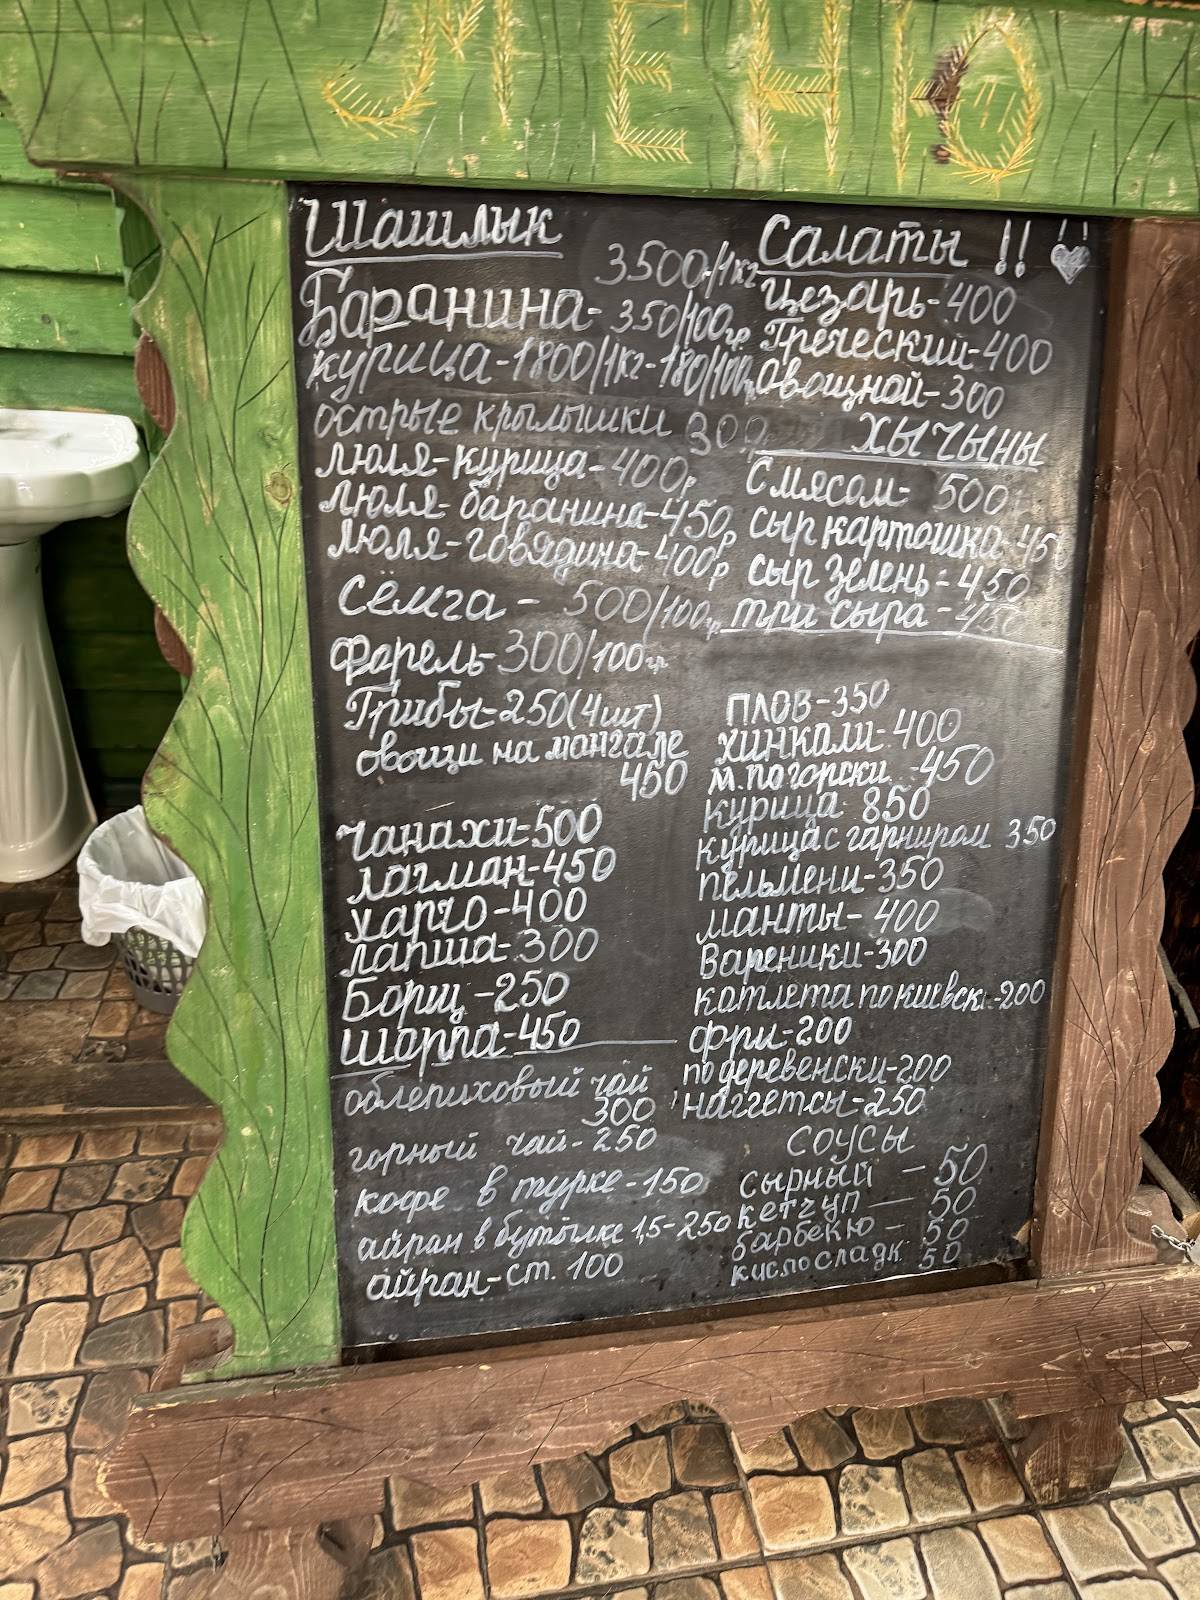 МЕНЮ
Шашлык
3500/1кг
Баранина- 350/100гр
курица-1800/1кг-180/100г
острые крылышки 300р
люля-курица-400р
люля-баранина-450р
люля-говядина-400р
Сёмга - 500/100гр
Форель-300/100гр
Грибы-250(4шт)
овощи на мангале
450
чанахи-500
лагман-450
харчо-400
лапша-300
Борщ-250
Шорпа-450
облепиховый чай
300
горный чай-250
кофе в турке-150
айран в бутылке 1,5-250
айран-ст. 100
Салаты !!
Цезарь-400
Греческий-400
овощной-300
ХЫЧЫНЫ
С мясом- 500
сыр картошка-450
сыр зелень-450
три сыра-450
плов-350
хинкали-400
м.погорски-450
курица 850
курица с гарниром 350
пельмени-350
манты-400
Вареники-300
котлета по киевск.-200
фри-200
по деревенски-200
наггетсы-250
СОУСЫ
сырный - 50
кетчуп - 50
барбекю - 50
кислосладк 50